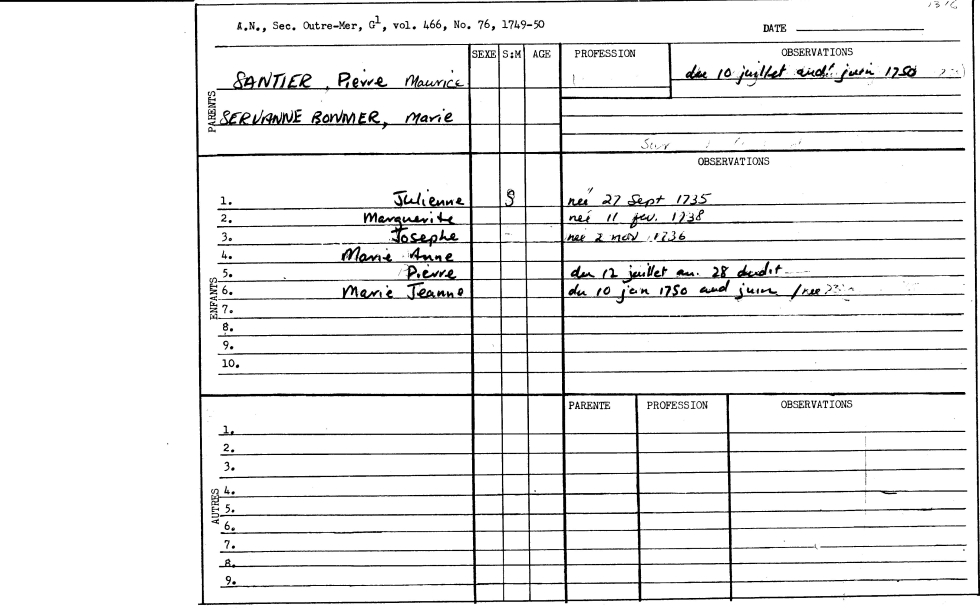 1316
A.N., Sec. Outre-Mer, G1, vol. 466, No. 76, 1749-50
DATE
SEXE S:M AGE PROFESSION OBSERVATIONS
PARENTS
SANTIER, Pierre Maurice
du 10 juillet audi juin 1750
SERVANNE BONMER, Marie
OBSERVATIONS
ENFANTS
1. Julienne née 27 Sept 1735
2. Marguerite née 11 fev. 1738
3. Josephe née 2 nov 1736
4. Marie Anne
5. Pierre du 12 juillet au. 28 dudit
6. Marie Jeanne du 10 juin 1750 aud juin
7.
8.
9.
10.
PARENTE PROFESSION OBSERVATIONS
AUTRES
1.
2.
3.
4.
5.
6.
7.
8.
9.